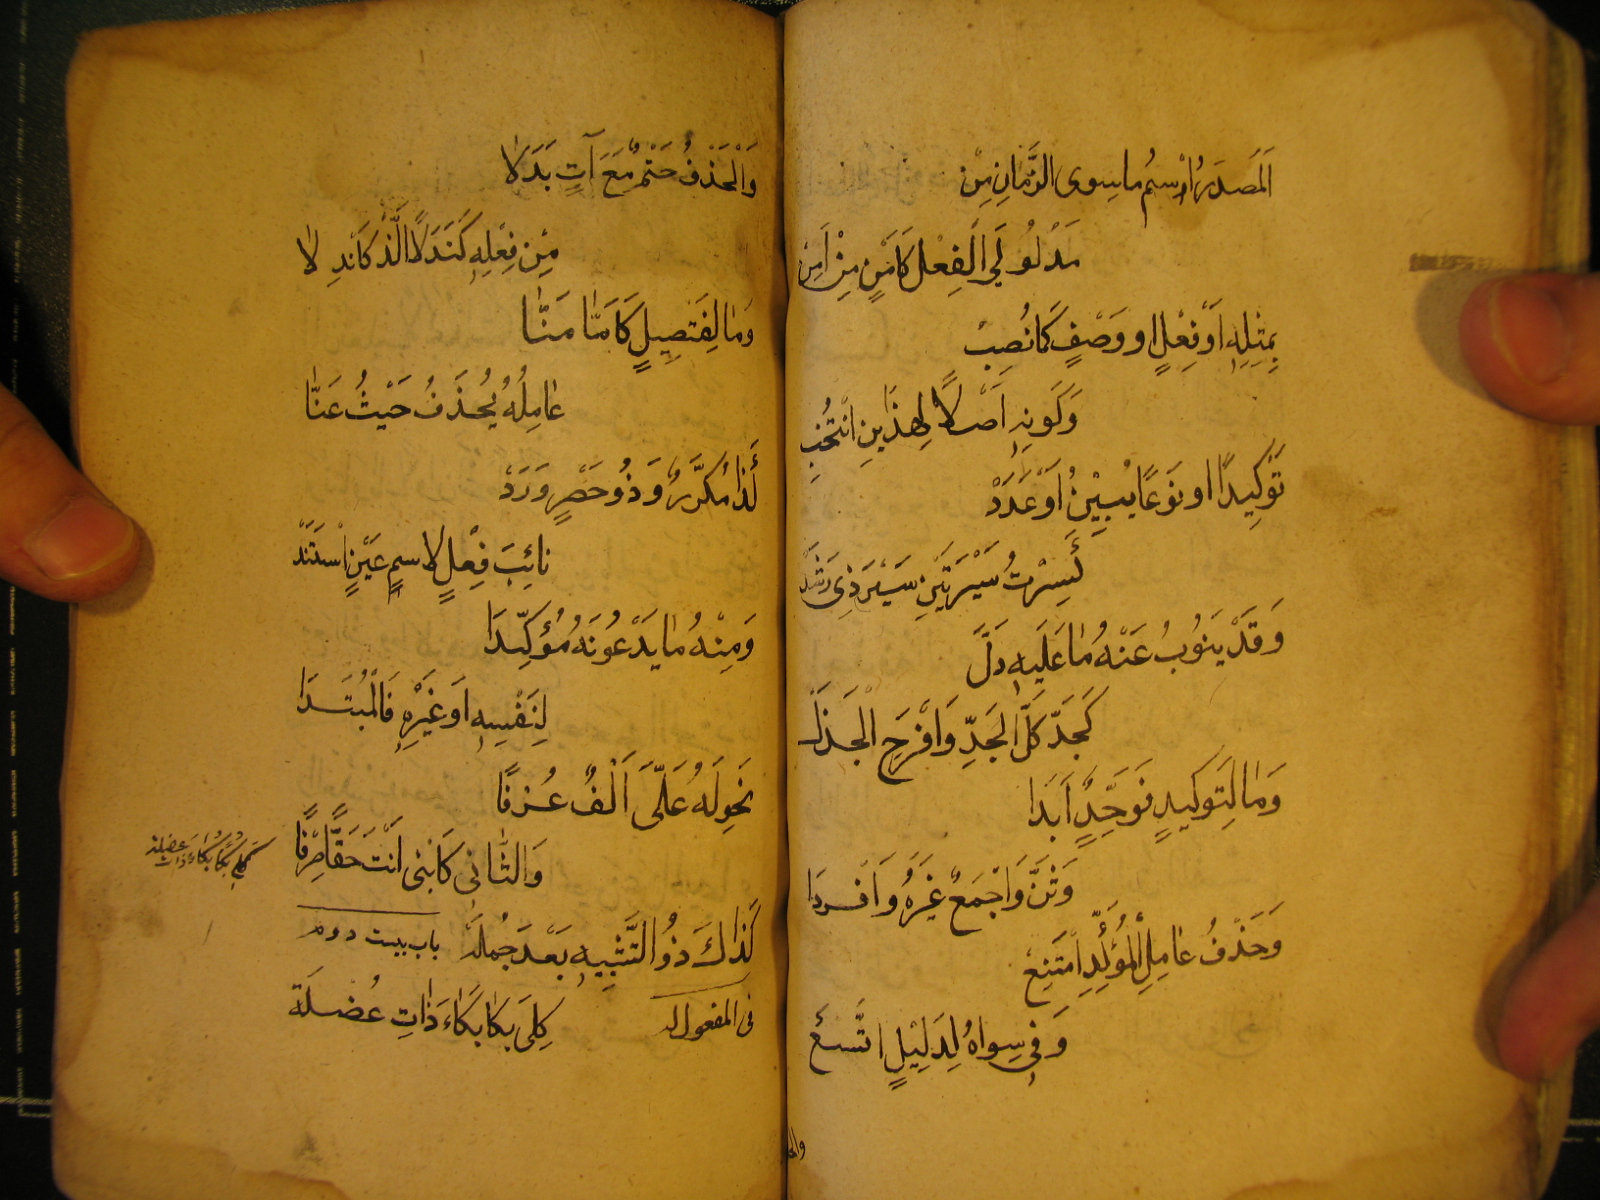 اَلْمَصدَرُ اْسمُ ماسِوى الزَّمانِ مِنْ
مَدْلُولَيِ الْفِعْل كَاَمْنٍ مِنْ اَمِنْ
بِمِثِلِهِ اَوْ فِعْلٍ او وَصْفٍ كَمانُصِبْ
وَكَونِهِ اَصْلاً لِهذَينِ انْتُخِبْ
تَوْكِيدًا اونَوعًا يُبيِنُ اَوْعَدَدْ
كَسِرْتُ سَيْرَتَيَنِ سَيْرَ ذِى رَشَدْ
وَقَدْ يَنوُبُ عَنْهُ ماعَلَيهِ دَلَّ
كَجَدّ كلَّ الجَدِّ وَافْرَحِ الْجَذَلْ
وَمالِتَوكيدٍ فَوَحِّدْ اَبَدا
وَثَنَّ وَاجْمَعْ غَيْرَهُ وَاَفْرِدا
وَحَذْفُ عامِلِ الْمُؤَكِّدِ امْتَنِعْ
وَفى سِواهُ لِدَلِيْلٍ اتَّسَعْ
والحذ
وَاْلحَذْفُ حَتْمٌ مَعَ آتٍ بَدَلا
مِنْ فِعْلِهِ كَنَدَلًا الَّذْ كَانْدِ لا
وَمالِتَفصِيلٍ كَاِمّا مَنّا
عامِلُهُ يُحذَفُ حَيْثُ عَنّا
كَذا مُكَرَّرٌ وَذُوحَصْرٍ وَرَدْ
نائِبَ فِعْلٍ لاسمٍ عَيْنٍ اسْتَنَدْ
وَمِنْهُ مايَدْعُونَهُ مُؤَكِّدَا
لِنَفْسِهِ اَوغَيْرِهِ فَالْمُبْتَدَا
نَحْوِلَهُ عَلَىَّ اَلْفٌ عُرْفًا
وَالثّانى كَابْنى اَنْتَ حَقًّا صِرْفًا
كَذاكَ ذُوالتَّشْبِيهِ بَعْدَ جُملَة
باب بيست دوم
فى المفعول له
كلِى بكا بكاءَ ذاتِ عُضلَة
كلِى بكًا بكاءَ ذات عضلة